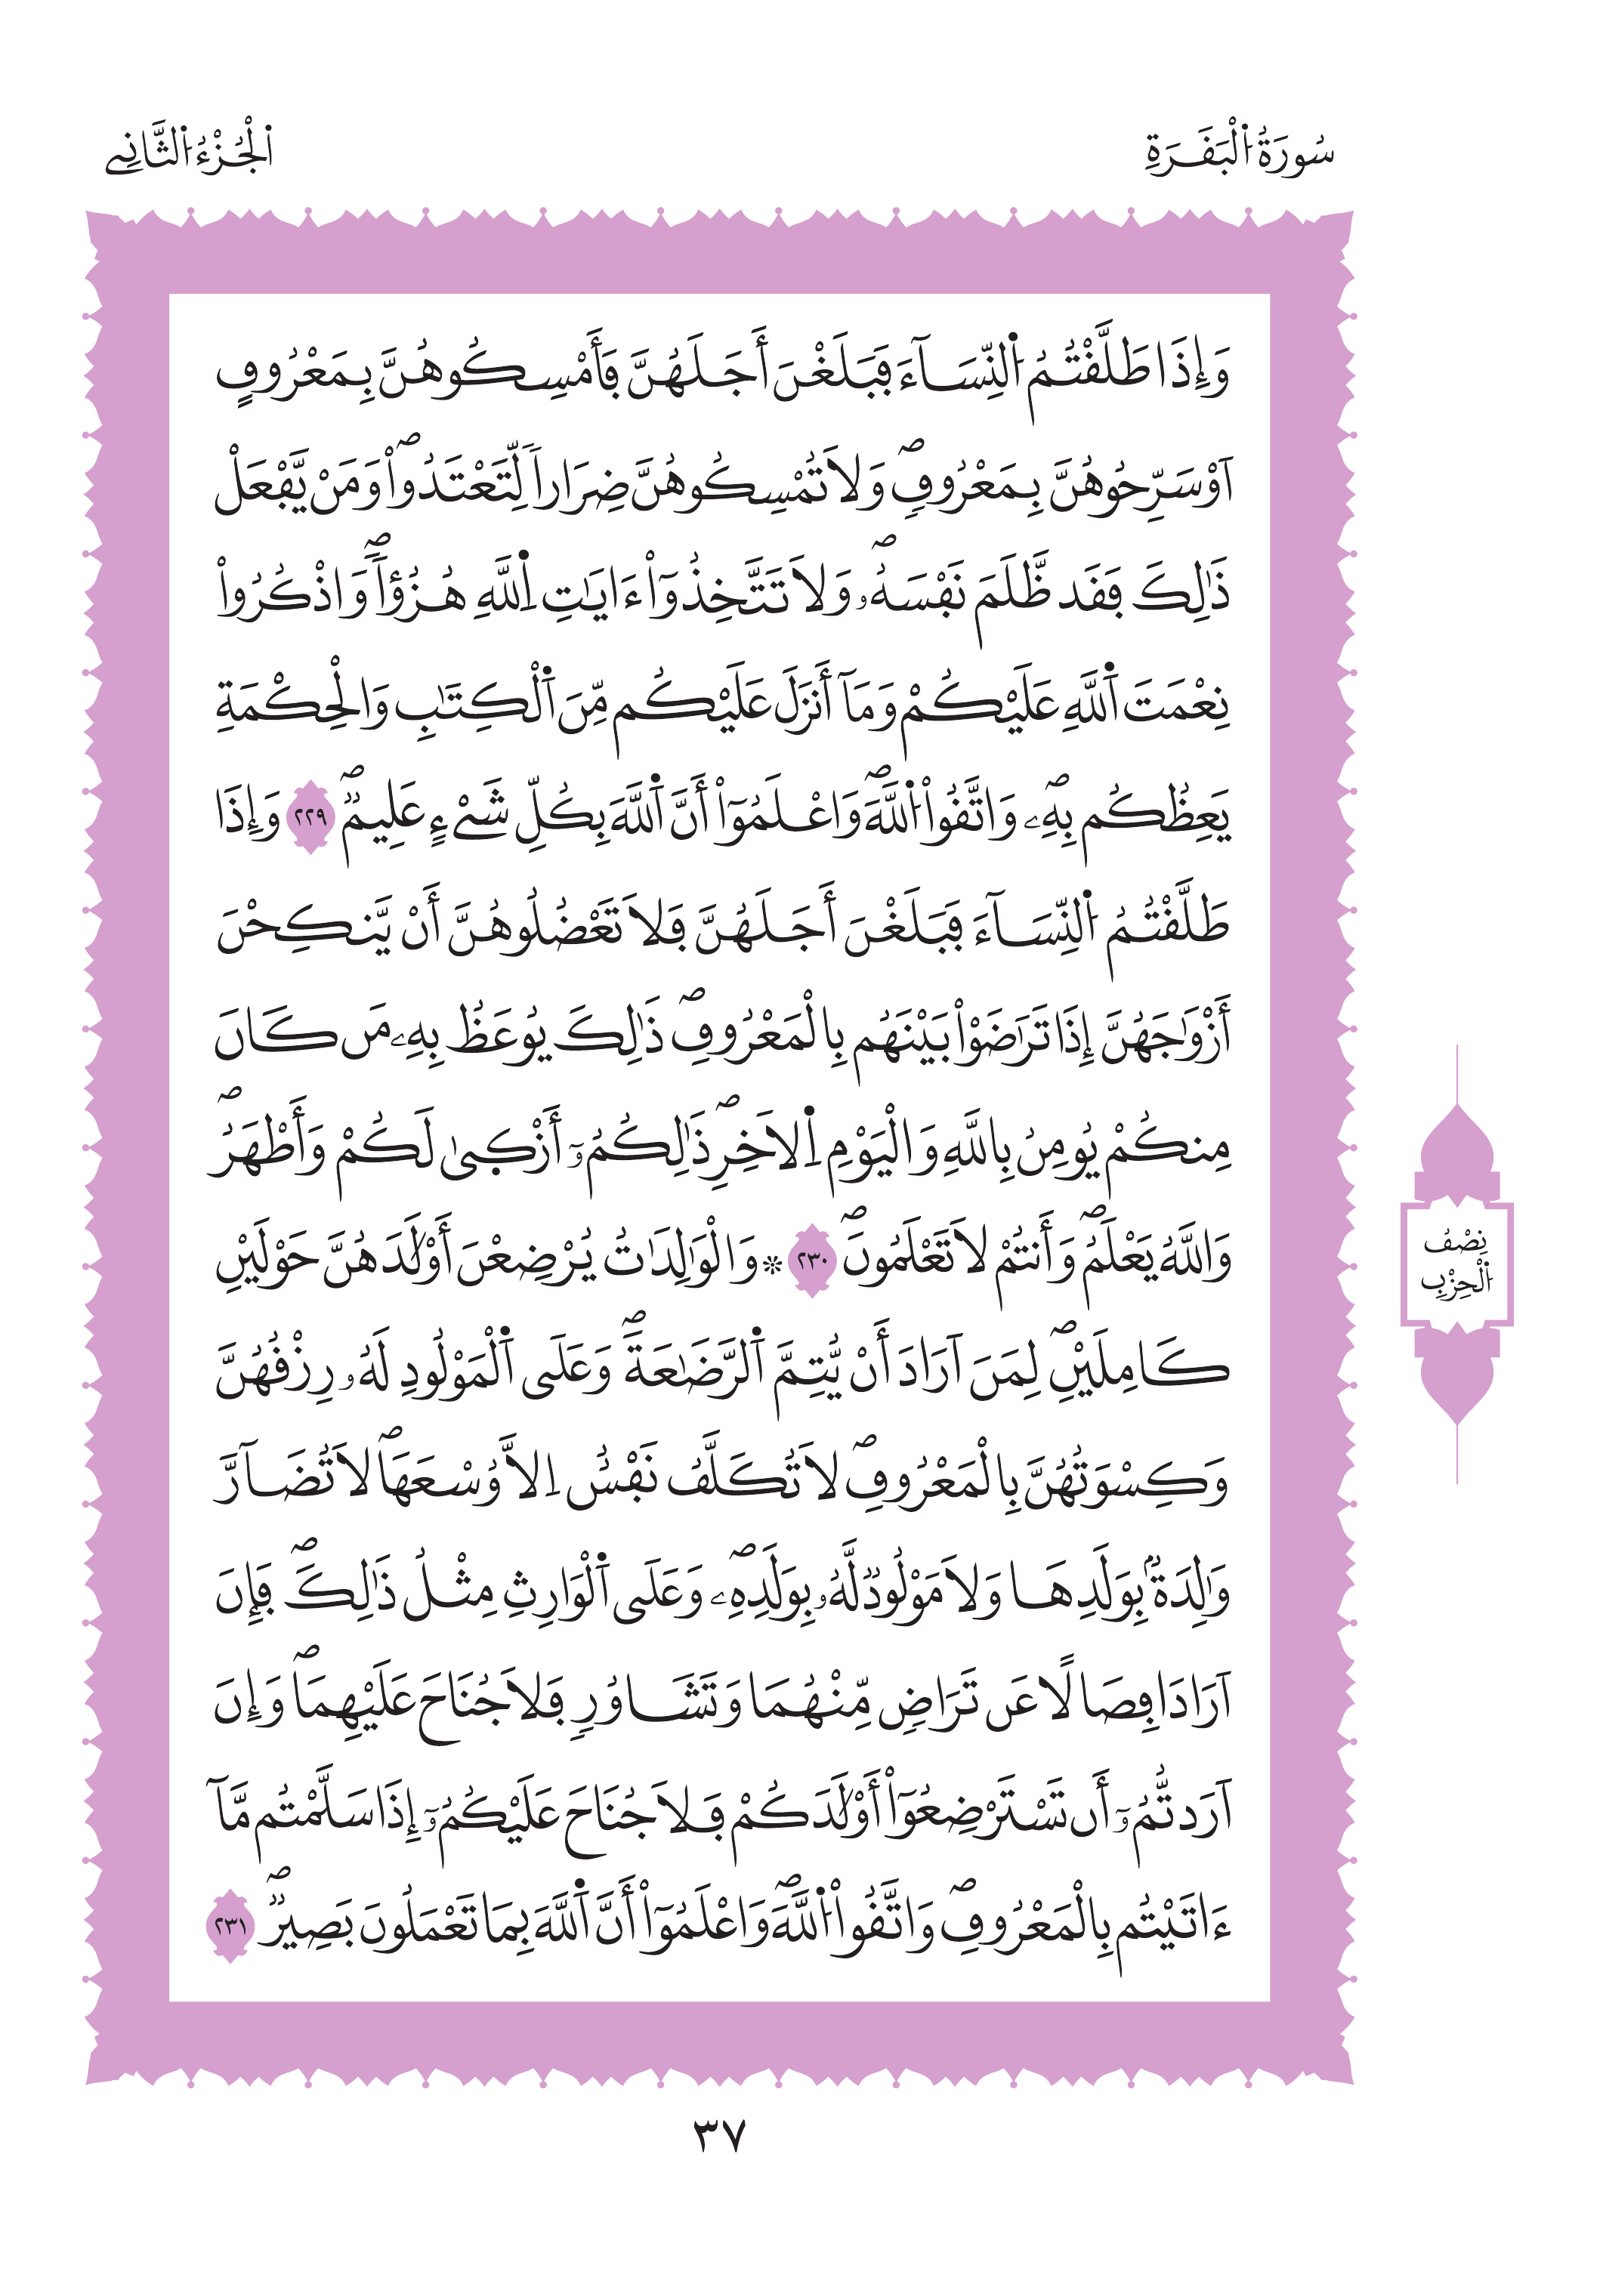 سُورَةُ اُ۬لْبَقَرَةِ
اَ۬لْجُزْءُ اُ۬لثَّانِے
وَإِذَا طَلَّقْتُمُ اُ۬لنِّسَآءَ فَبَلَغْنَ أَجَلَهُنَّ فَأَمْسِكُوهُنَّ بِمَعْرُوفٍ
اَوْ سَرِّحُوهُنَّ بِمَعْرُوفٖۖ وَلَا تُمْسِكُوهُنَّ ضِرَاراٗ لِّتَعْتَدُواْۖ وَمَنْ يَّفْعَلْ
ذَٰلِكَ فَقَد ظَّلَمَ نَفْسَهُۥۖ وَلَا تَتَّخِذُوٓاْ ءَايَٰتِ اِ۬للَّهِ هُزُؤاٗۖ وَاذْكُرُواْ
نِعْمَتَ اَ۬للَّهِ عَلَيْكُمْ وَمَآ أَنزَلَ عَلَيْكُم مِّنَ اَ۬لْكِتَٰبِ وَالْحِكْمَةِ
يَعِظُكُم بِهِۦۖ وَاتَّقُواْ اُ۬للَّهَۖ وَاعْلَمُوٓاْ أَنَّ اَ۬للَّهَ بِكُلِّ شَےْءٍ عَلِيمٞۖ ٢٢٩ وَإِذَا
طَلَّقْتُمُ اُ۬لنِّسَآءَ فَبَلَغْنَ أَجَلَهُنَّ فَلَا تَعْضُلُوهُنَّ أَنْ يَّنكِحْنَ
أَزْوَٰجَهُنَّ إِذَا تَرَٰضَوْاْ بَيْنَهُم بِالْمَعْرُوفِۖ ذَٰلِكَ يُوعَظُ بِهِۦ مَن كَانَ
مِنكُمْ يُومِنُ بِاللَّهِ وَالْيَوْمِ اِ۬لَاخِرِۖ ذَٰلِكُمُۥٓ أَزْك۪ىٰ لَكُمْ وَأَطْهَرُۖ
وَاللَّهُ يَعْلَمُۖ وَأَنتُمْ لَا تَعْلَمُونَۖ ٢٣٠ ۞ وَالْوَٰلِدَٰتُ يُرْضِعْنَ أَوْلَٰدَهُنَّ حَوْلَيْنِ
كَامِلَيْنِۖ لِمَنَ اَرَادَ أَنْ يُّتِمَّ اَ۬لرَّضَٰعَةَۖ وَعَلَى اَ۬لْمَوْلُودِ لَهُۥ رِزْقُهُنَّ
وَكِسْوَتُهُنَّ بِالْمَعْرُوفِۖ لَا تُكَلَّفُ نَفْسٌ اِلَّا وُسْعَهَاۖ لَا تُضَآرَّ
وَٰلِدَةُۢ بِوَلَدِهَا وَلَا مَوْلُودٞ لَّهُۥ بِوَلَدِهِۦۖ وَعَلَى اَ۬لْوَارِثِ مِثْلُ ذَٰلِكَۖ فَإِنَ
اَرَادَا فِصَالًا عَن تَرَاضٖ مِّنْهُمَا وَتَشَاوُرٖ فَلَا جُنَاحَ عَلَيْهِمَاۖ وَإِنَ
اَرَدتُّمُۥٓ أَن تَسْتَرْضِعُوٓاْ أَوْلَٰدَكُمْ فَلَا جُنَاحَ عَلَيْكُمُۥٓ إِذَا سَلَّمْتُم مَّآ
ءَاتَيْتُم بِالْمَعْرُوفِۖ وَاتَّقُواْ اُ۬للَّهَۖ وَاعْلَمُوٓاْ أَنَّ اَ۬للَّهَ بِمَا تَعْمَلُونَ بَصِيرٞۖ ٢٣١
نِصْفُ
اُ۬لْحِزْبِ
٣٧